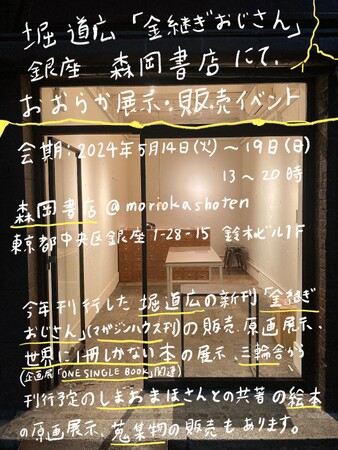 堀 道広「金継ぎおじさん」
銀座 森岡書店にて、
おおらか展示・販売イベント
会期:2024年5月14日(火)〜19日(日)
13〜20時
森岡書店@moriokashoten
東京都中央区銀座1-28-15 鈴木ビル1F
今年刊行した堀道広の新刊「金継ぎ
おじさん」(マガジンハウス刊)の販売、原画展示、
世界に1冊しかない本の展示、三輪舎から
(企画展「ONE SINGLE BOOK」関連)
刊行予定のしまおまほさんとの共著の絵本
の原画展示、蒐集物の販売もあります。